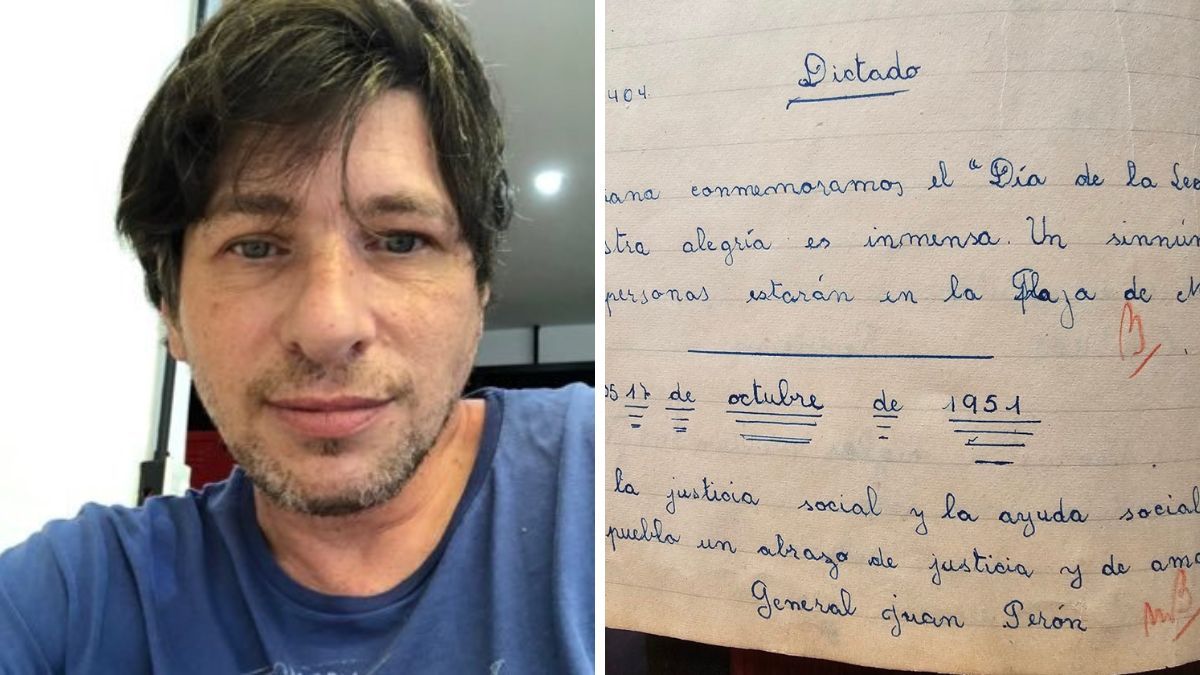 Dictado
404.
ana conmemoramos el "Día de la Lea
stra alegría es inmensa. Un sinnúm
personas estarán en la Plaza de M
B
17 de octubre de 1951
la justicia social y la ayuda social
pueblo un abrazo de justicia y de amo
General Juan Perón
mB